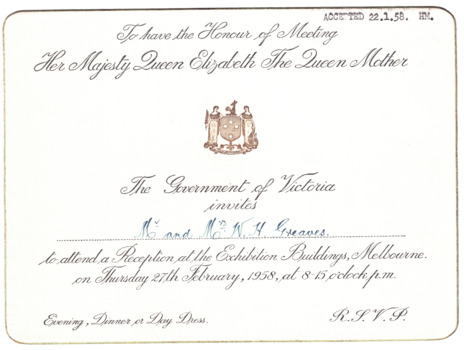 ACCEPTED 22.1.58. HM.
To have the Honour of Meeting
Her Majesty Queen Elizabeth The Queen Mother
The Government of Victoria
invites
Mr and Mrs W. H. Greaves.
to attend a Reception at the Exhibition Buildings, Melbourne.
on Thursday 27th February, 1958, at 8·15 o'clock p.m.
Evening, Dinner or Day Dress.
R.S.V.P.